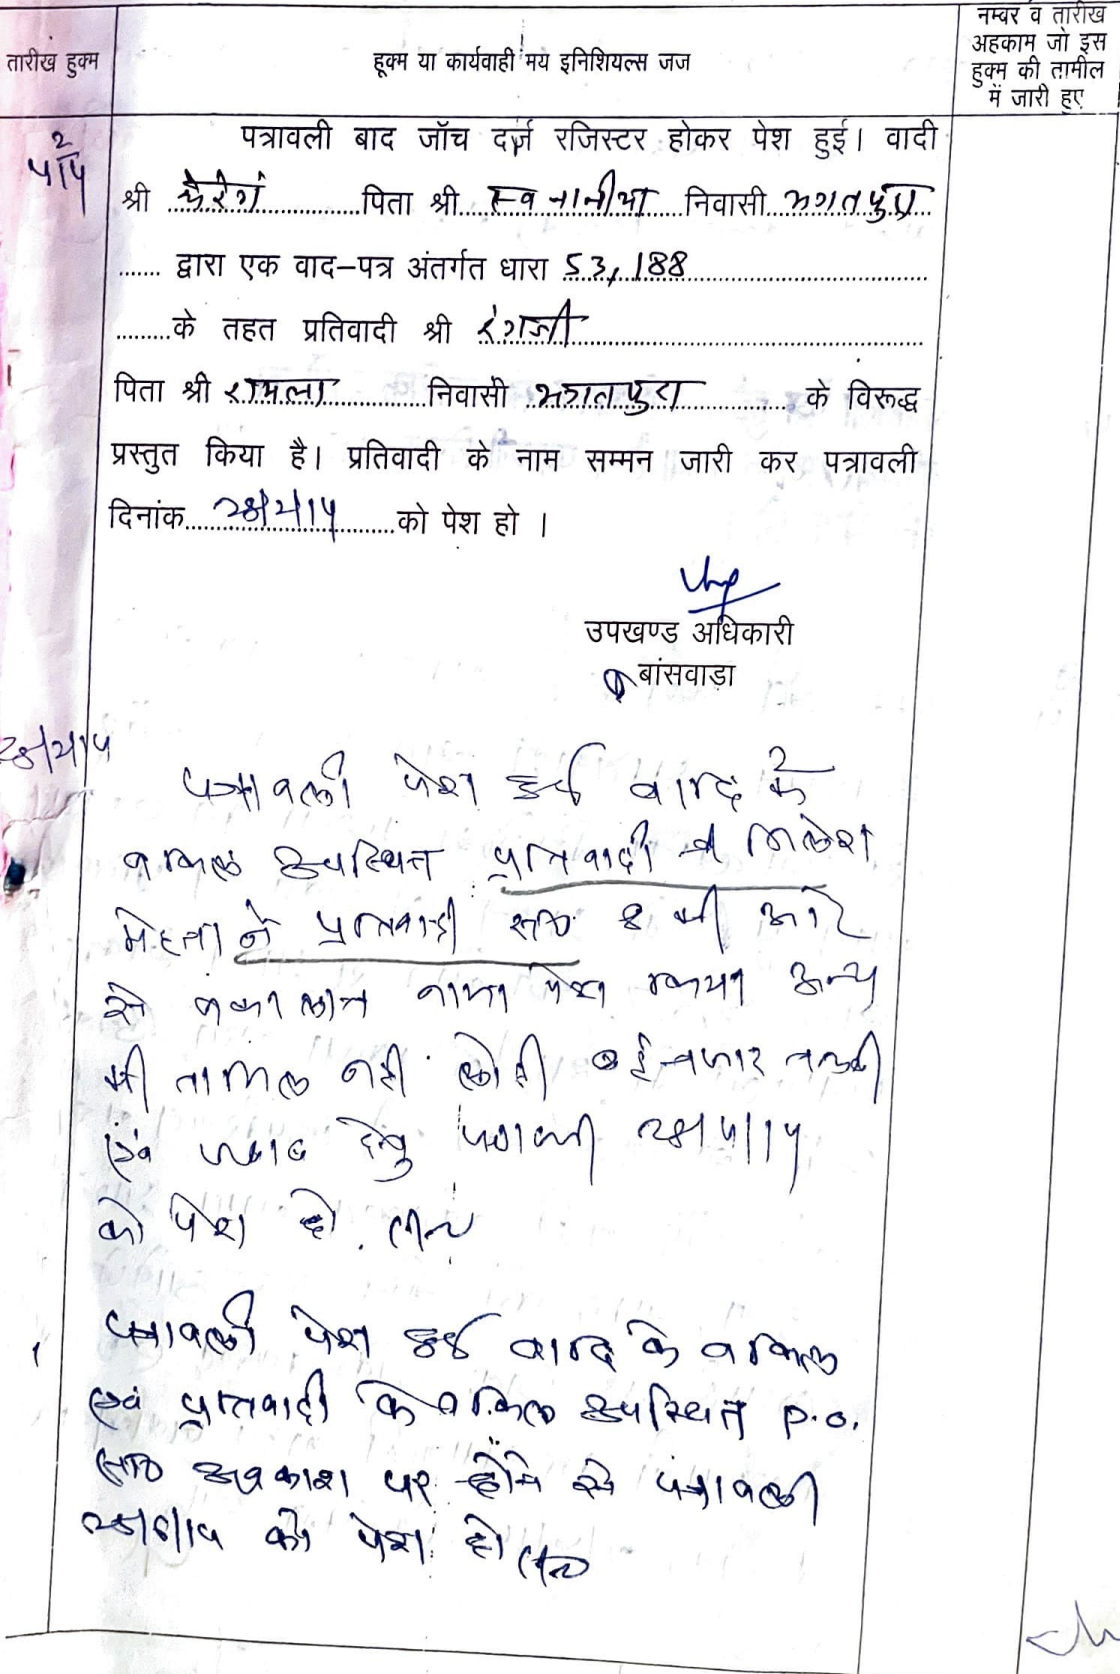 तारीख हुक्म
हूक्म या कार्यवाही मय इनिशियल्स जज
नम्बर व तारीख
अहकाम जो इस
हुक्म की तामील
में जारी हुए
पत्रावली बाद जॉच दर्ज रजिस्टर होकर पेश हुई। वादी
श्री ............ पिता श्री स्व नानीया निवासी भगतपुरा
....... द्वारा एक वाद-पत्र अंतर्गत धारा 53, 188
.........के तहत प्रतिवादी श्री रंगजी
पिता श्री रामला निवासी भगतपुरा के विरूद्ध
प्रस्तुत किया है। प्रतिवादी के नाम सम्मन जारी कर पत्रावली
दिनांक ............ को पेश हो ।
उपखण्ड अधिकारी
बांसवाड़ा
पत्रावली पेश हुई वादि के
वकिल उपस्थित प्रतिवादी मिलेश
मेहता ने प्रतिवादी 8 की ओर
से वकालात नामा पेश किया अन्य
की तामिल नही तलबी
एवं जवाब हेतु पत्रावली
को पेश हो
पत्रावली पेश हुई वादि के वकिल
एवं प्रतिवादी के वकिल उपस्थित P.O.
सा० अवकाश पर होने से पत्रावली
को पेश हो